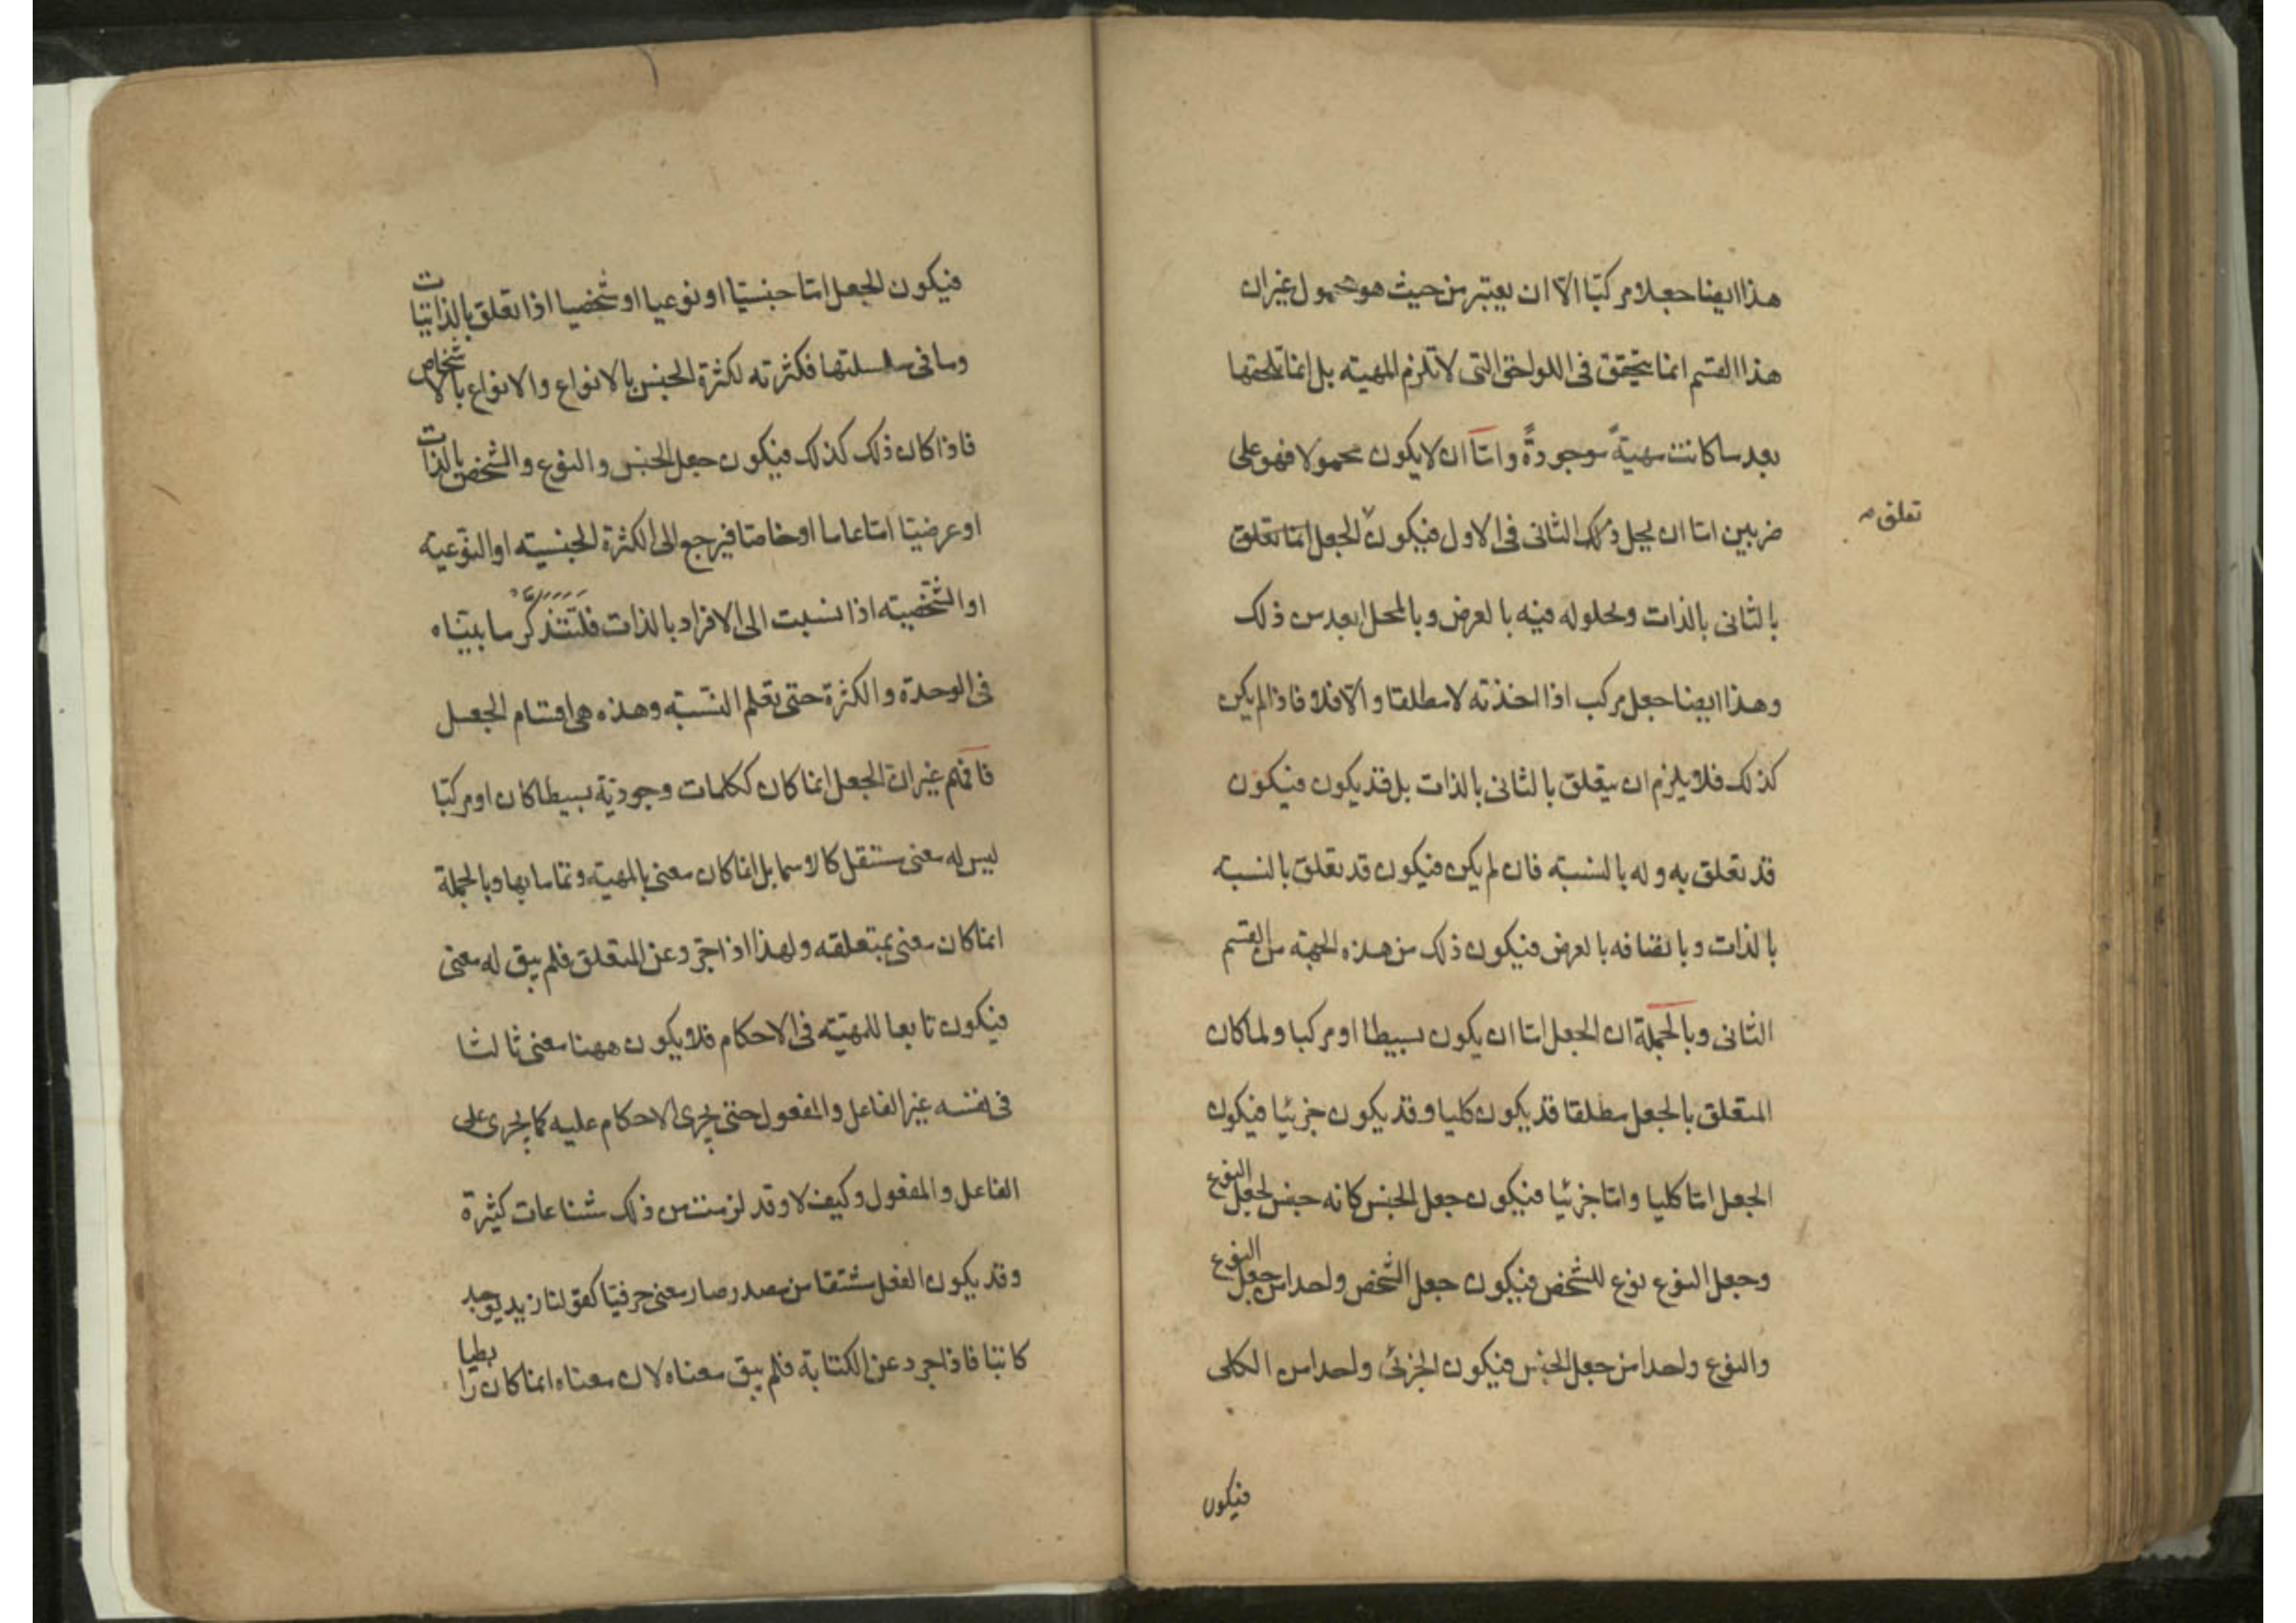 هذا ايضا جعلا مركبّا الّا ان يعتبر من حيث هو محمول غير ان
هذا القسم انما يتحقق فى اللواحق التى لا تلزم المهيته بل انما تلحقها
بعد ما كانت مهيّةً موجودةً وامّا ان لا يكون محمولا فهو على
تعلق
ضربين امّا ان يحل ذلك الثانى فى الاول فيكون الجعل انما تعلق
بالثانى بالذات وبحلوله فيه بالعرض وبالمحل بعد من ذلك
وهذا ايضا جعل مركب اذا اخذته لا مطلقا والّا فلا فاذا لم يكن
كذلك فلا يلزم ان يتعلق بالثانى بالذات بل قد يكون فيكون
قد تعلق به وله بالنسبته فان لم يكن فيكون قد تعلق بالنسبته
بالذات وباتصافه بالعرض فيكون ذلك من هذه الجهته من القسم
الثانى وبالجملة ان الجعل امّا ان يكون بسيطا او مركبا ولما كان
المتعلق بالجعل مطلقا قد يكون كليا وقد يكون جزئيا فيكون
الجعل امّا كليا وامّا جزئيا فيكون جعل الجنس كانه جنس لجعل النوع
وجعل النوع نوع للشخص فيكون جعل الشخص واحدا من جعل النوع
والنوع واحدا من جعل الجنس فيكون الجزئى واحدا من الكلى
فيكون
فيكون الجعل امّا جنسيّا او نوعيا او شخصيا اذا تعلق بالذاتيّات
وما فى سلسلتها فكثرته لكثرة الجنس بالانواع والانواع بالاشخاص
فاذا كان ذلك كذلك فيكون جعل الجنس والنوع والشخص بالذات
او عرضيّا امّا عاما او خاصّا فيرجع الى الكثرة الجنسيته او النوعيته
او الشخصيته اذا نسبت الى الافراد بالذات فلتتذكّر ما بيّناه
فى الوحدة والكثرة حتى تعلم النّسبته وهذه هى اقسام الجعل
فافهم غير انّ الجعل انما كان ككلمات وجوديّة بسيطا كان او مركبّا
ليس له معنى مستقل كالاسما بل انما كان معنى بالمهيته وتماما بها وبالجملة
انما كان معنى بمتعلقه ولهذا اذا جرّد عن المتعلق فلم يبق له معنى
فيكون تابعا للمهيّته فى الاحكام فلا يكون ههنا معنى ثالثا
فى نفسه غير الفاعل والمفعول حتى يجرى الاحكام عليه كما يجرى على
الفاعل والمفعول وكيف لا وقد لزمت من ذلك شناعات كثيرة
وقد يكون الفعل مشتقا من مصدر صار معنى حرفيّا كقولنا زيد يوجد
كاتبا فاذا جرد عن الكتابة فلم يبق معناه لان معناه انما كان رابطيا